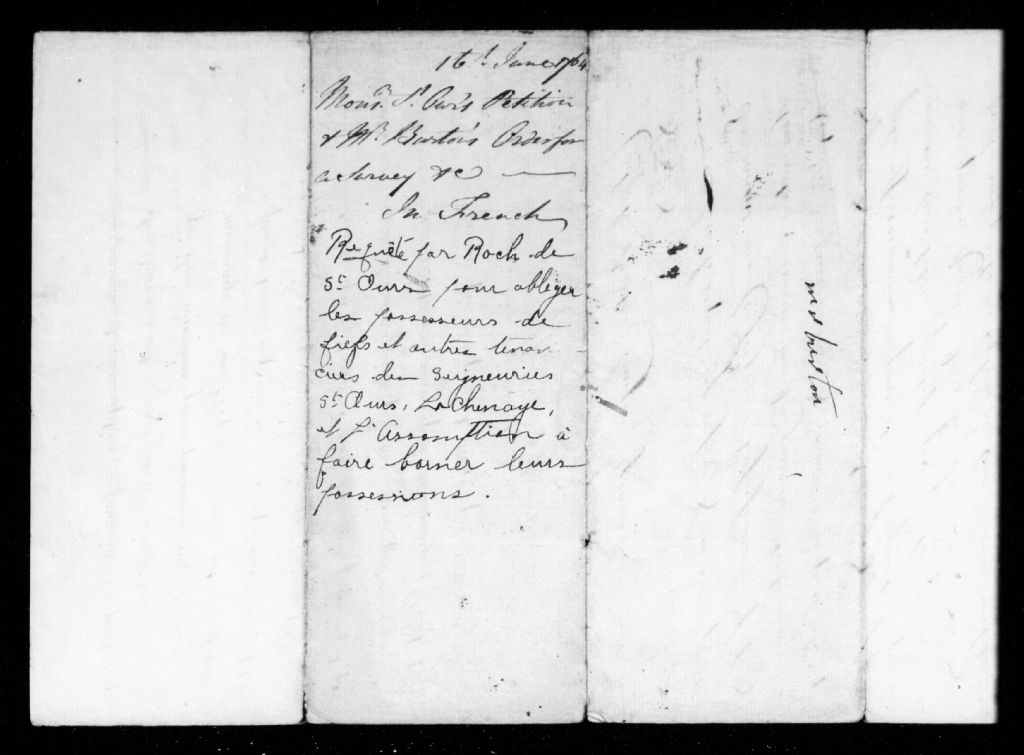 16t June 1764
Monsr. St. Our's Petition
& Mr. Burton's Order for
a Survey &c
In French
Requête par Roch de
St Ours pour obliger
les possesseurs de
fiefs et autres tenan-
ciers des Seigneuries
St Ours, LaChenaye,
et L'Assomption à
faire borner leurs
possessions.
mr burton